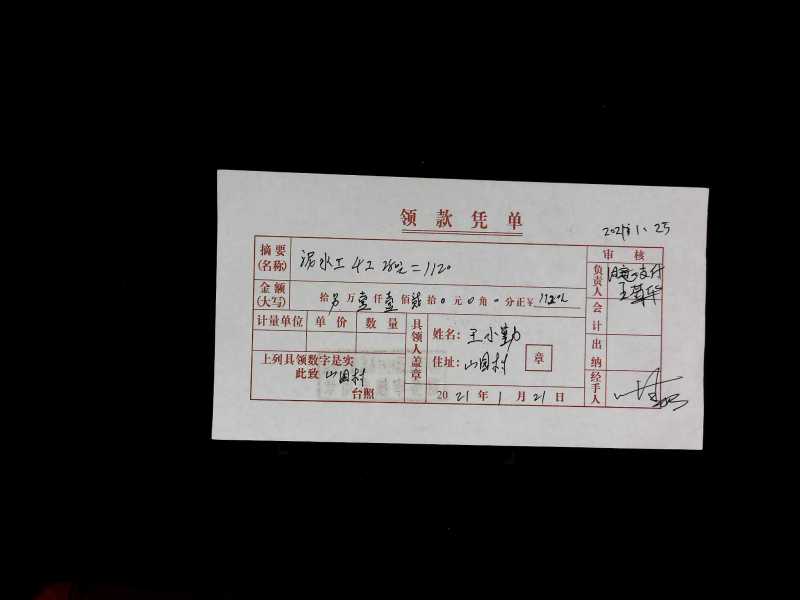 领款凭单
2021年1、25
摘要(名称) 泥水工 4工 280元=1120
审核
金额(大写) 拾 万壹仟壹佰贰拾0元0角0分正¥1120元
负责人 同意支付
计量单位 单价 数量
具领人盖章
姓名：王小勤
住址：山围村
章
会计
出纳
上列具领数字是实
此致 山围村
台照
2021年1月21日
经手人